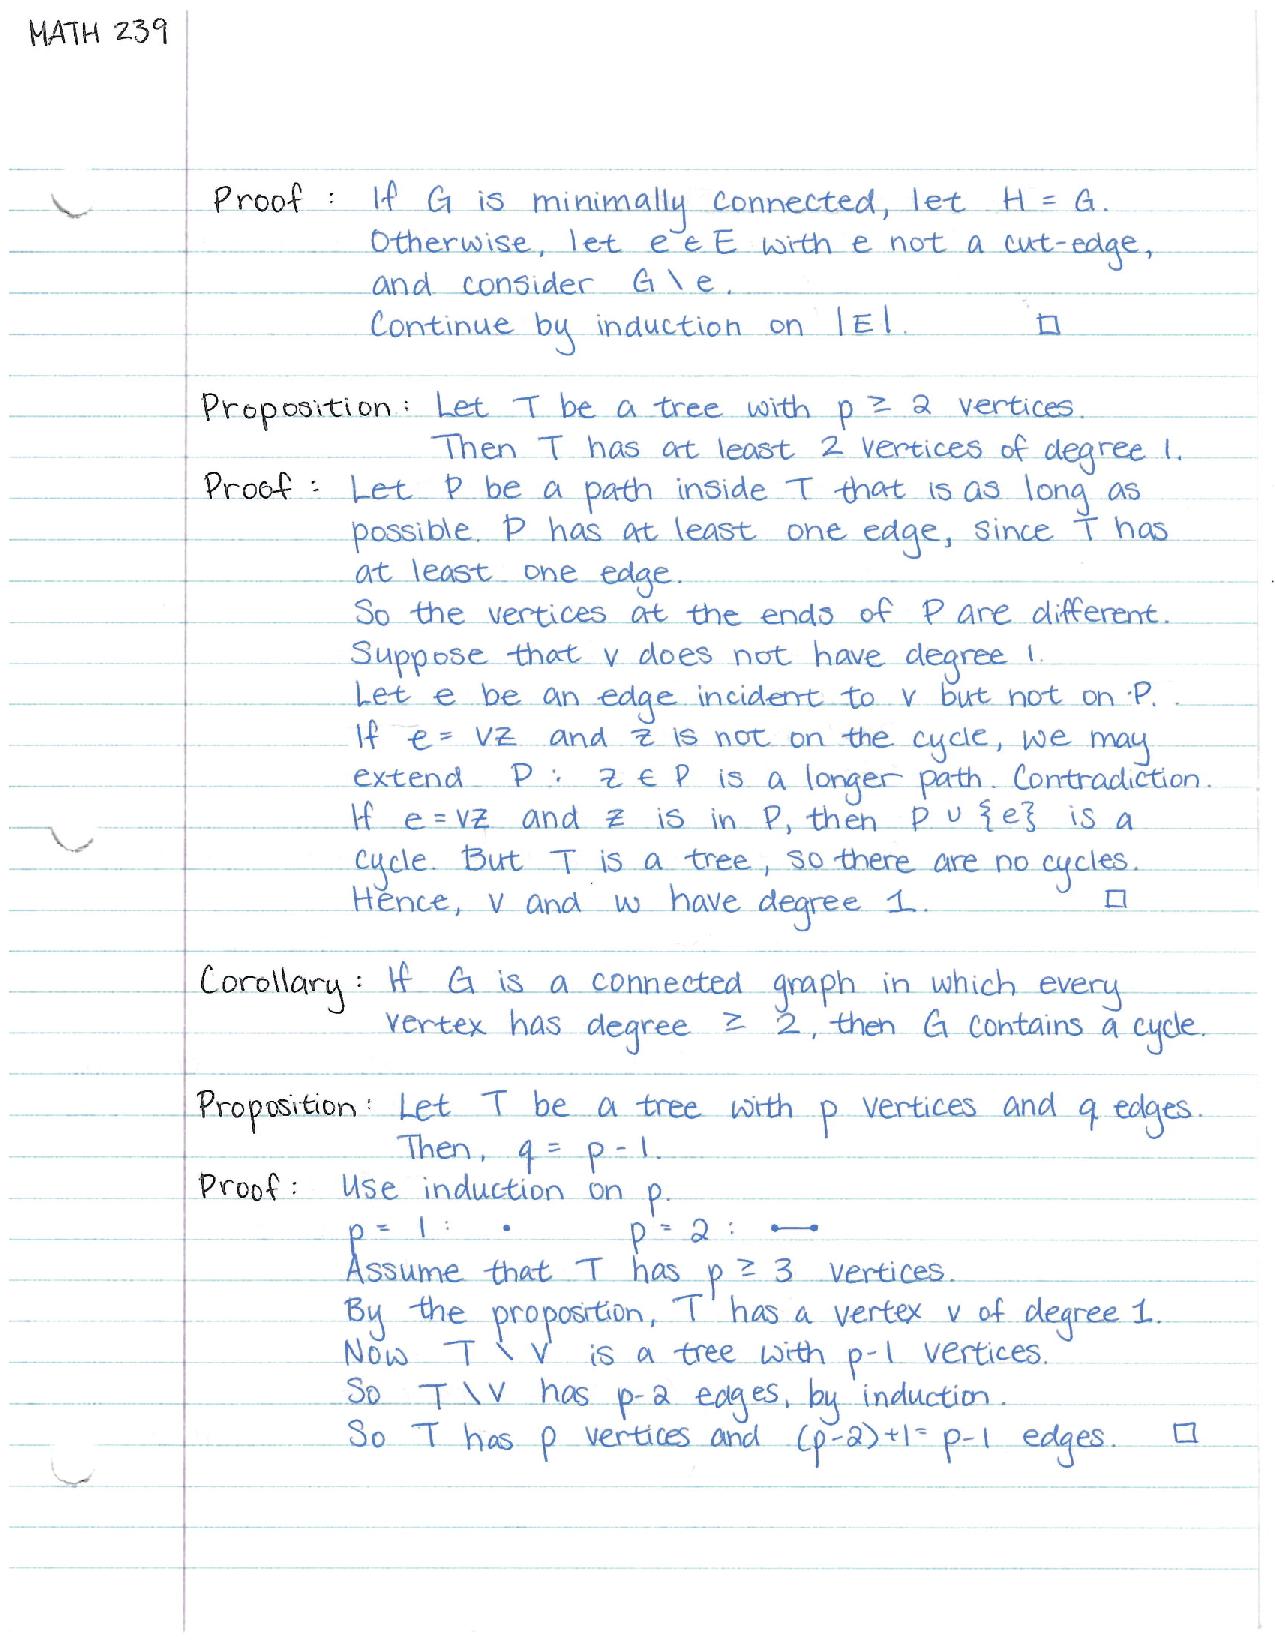 MATH 239
Proof : If G is minimally connected, let H = G.
Otherwise, let e ∈ E with e not a cut-edge,
and consider G \ e.
Continue by induction on |E|. □
Proposition : Let T be a tree with p ≥ 2 vertices.
Then T has at least 2 vertices of degree 1.
Proof : Let P be a path inside T that is as long as
possible. P has at least one edge, since T has
at least one edge.
So the vertices at the ends of P are different.
Suppose that v does not have degree 1.
Let e be an edge incident to v but not on P.
If e = vz and z is not on the cycle, we may
extend P : z ∈ P is a longer path. Contradiction.
If e = vz and z is in P, then P ∪ {e} is a
cycle. But T is a tree, so there are no cycles.
Hence, v and w have degree 1. □
Corollary : If G is a connected graph in which every
vertex has degree ≥ 2, then G contains a cycle.
Proposition : Let T be a tree with p vertices and q edges.
Then, q = p - 1.
Proof : Use induction on p.
p = 1 : p = 2 :
Assume that T has p ≥ 3 vertices.
By the proposition, T has a vertex v of degree 1.
Now T \ v is a tree with p-1 vertices.
So T \ v has p-2 edges, by induction.
So T has p vertices and (p-2)+1 = p-1 edges. □